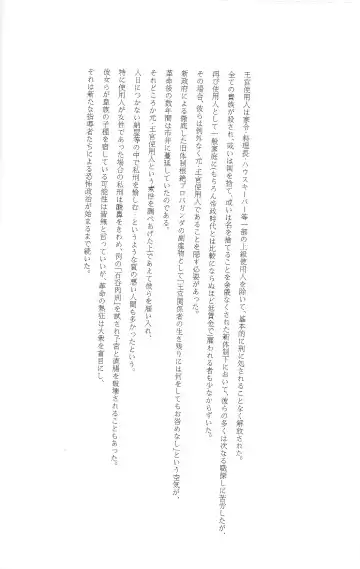 王宮使用人は家令・料理長・ハウスキーパー等一部の上級使用人を除いて、基本的に刑に処されることなく解放された。
全ての貴族が殺され、或いは国を捨て、或いは名を捨てることを余儀なくされた新体制下において、彼らの多くは次なる職探しに苦労したが、
再び使用人として一般家庭に（もちろん帝政時代とは比較にならぬほど低賃金で）雇われる者も少なからずいた。
その場合、彼らは例外なく元・王宮使用人であることを隠す必要があった。
新政府による徹底した旧体制根絶プロパガンダの副産物として「王宮関係者の生き残りには何をしてもお咎めなし」という空気が、
革命後の数年間は市井に蔓延していたのである。
それどころか元・王宮使用人という素性を調べあげた上であえて彼らを雇い入れ、
人目につかない納屋等の中で私刑を愉しむ――というような質の悪い人間も多かったという。
特に使用人が女性であった場合の私刑は酸鼻をきわめ、例の「百合肉刑」を試され子宮と直腸を破壊されることもあった。
彼女らが皇族の子種を宿している可能性は皆無と言っていいが、革命の熱狂は大衆を盲目にし、
それは新たな指導者たちによる恐怖政治が始まるまで続いた。